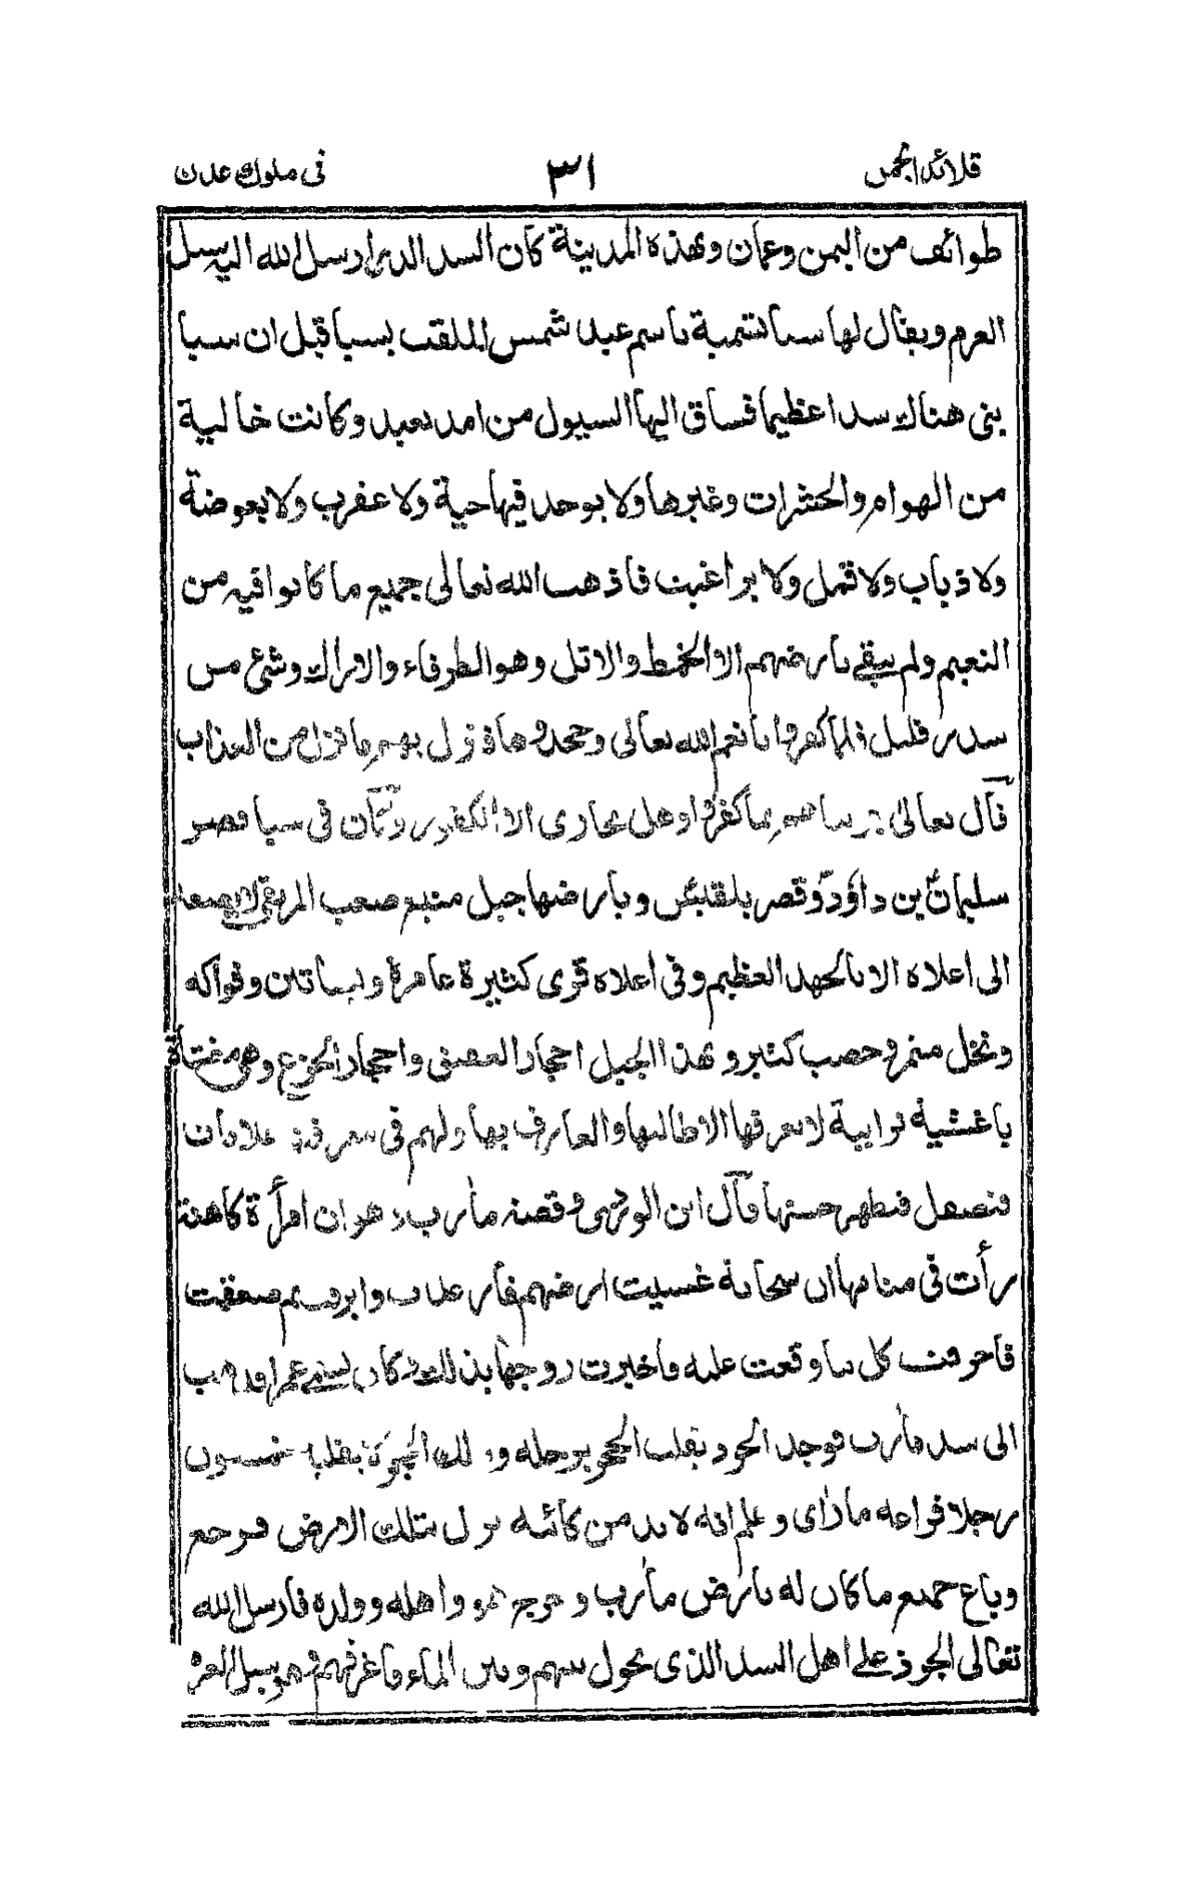 قلائد الجمن ٣١ فى ملوك عدن
طوائف من اليمن وعمان وبهذه المدينة كان السد الذى ارسل الله اليه سيل
العرم ويقال لها سبا تسمية باسم عبد شمس الملقب بسبا قبل ان سبا
بنى هناك سدا عظيما فساق اليها السيول من امد بعيد وكانت خالية
من الهوام والحشرات وغيرها ولا يوجد فيها حية ولا عقرب ولا بعوضة
ولا ذباب ولا قمل ولا براغيث فاذهب الله تعالى جميع ما كانوا فيه من
النعيم ولم يبقى بارضهم الا الخمط والاثل وهو الطرفاء والاراك وشئ من
سدر قليل فلما كفروا بانعم الله تعالى وجحدوها نزل بهم ما نزل من العذاب
قال تعالى جزيناهم بما كفروا وهل يجازى الا الكفور وكان فى سبا قصر
سليمان بن داود وقصر بلقيس وبارضها جبل منيع صعب المرتقى لا يصعد
الى اعلاه الا بالجهد العظيم وفى اعلاه قرى كثيرة عامرة وبساتين وفواكه
ونخل مثمر وخصب كثير وبهذا الجبل احجار العقيق واحجار الجزع وهى مغشاة
باغشية ترابية لا يعرفها الا طالبها والعارف بها ولهم فى معرفته علامات
فتصقل فيظهر حسنها قال ابن الوردى وقصة مارب هو ان امرأة كاهنة
رأت فى منامها ان سحابة غشيت ارضهم فأرعدت وابرقت ثم صعقت
فاحرقت كل ما وقعت عليه فاخبرت زوجها بذلك وكان يسمى عمرا فذهب
الى سد مأرب فوجد الجرد يقلب الحجر برجله و ذلك الحجر ة يقلبا خمسون
رجلا فراعه ما رأى وعلم انه لابد من كائنة تنزل بتلك الارض فرجع
وباع جميع ما كان له بارض مأرب وخرج هو واهله وولده فارسل الله
تعالى الجرذ على اهل السد الذى يحول بينهم وبين الماء فاغرقهم وهو سيل العرم